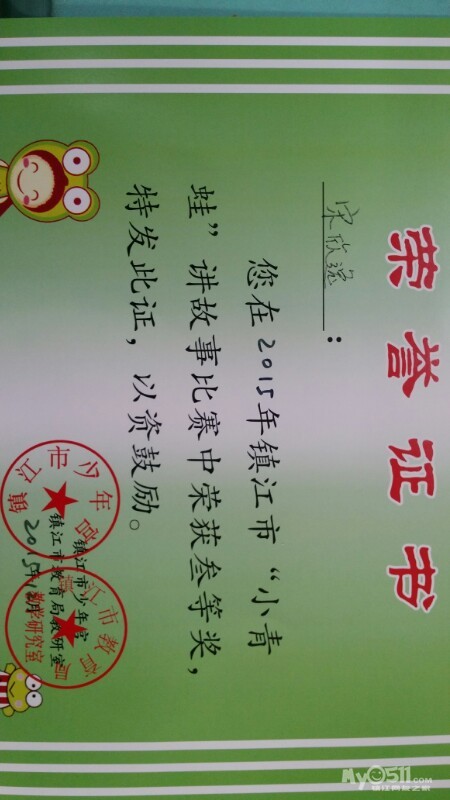 荣誉证书
宋欣逸：
您在2015年镇江市“小青
蛙”讲故事比赛中荣获叁等奖，
特发此证，以资鼓励。
镇江市少年宫
镇江市教育局教研室
Myo511.com